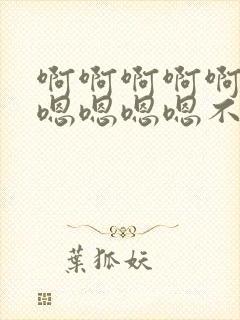 啊啊啊啊啊
嗯嗯嗯嗯不
葉狐妖